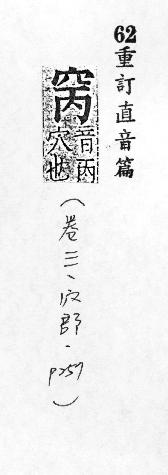 62重訂直音篇
窉
音丙
穴也
(卷三、穴部.p257)